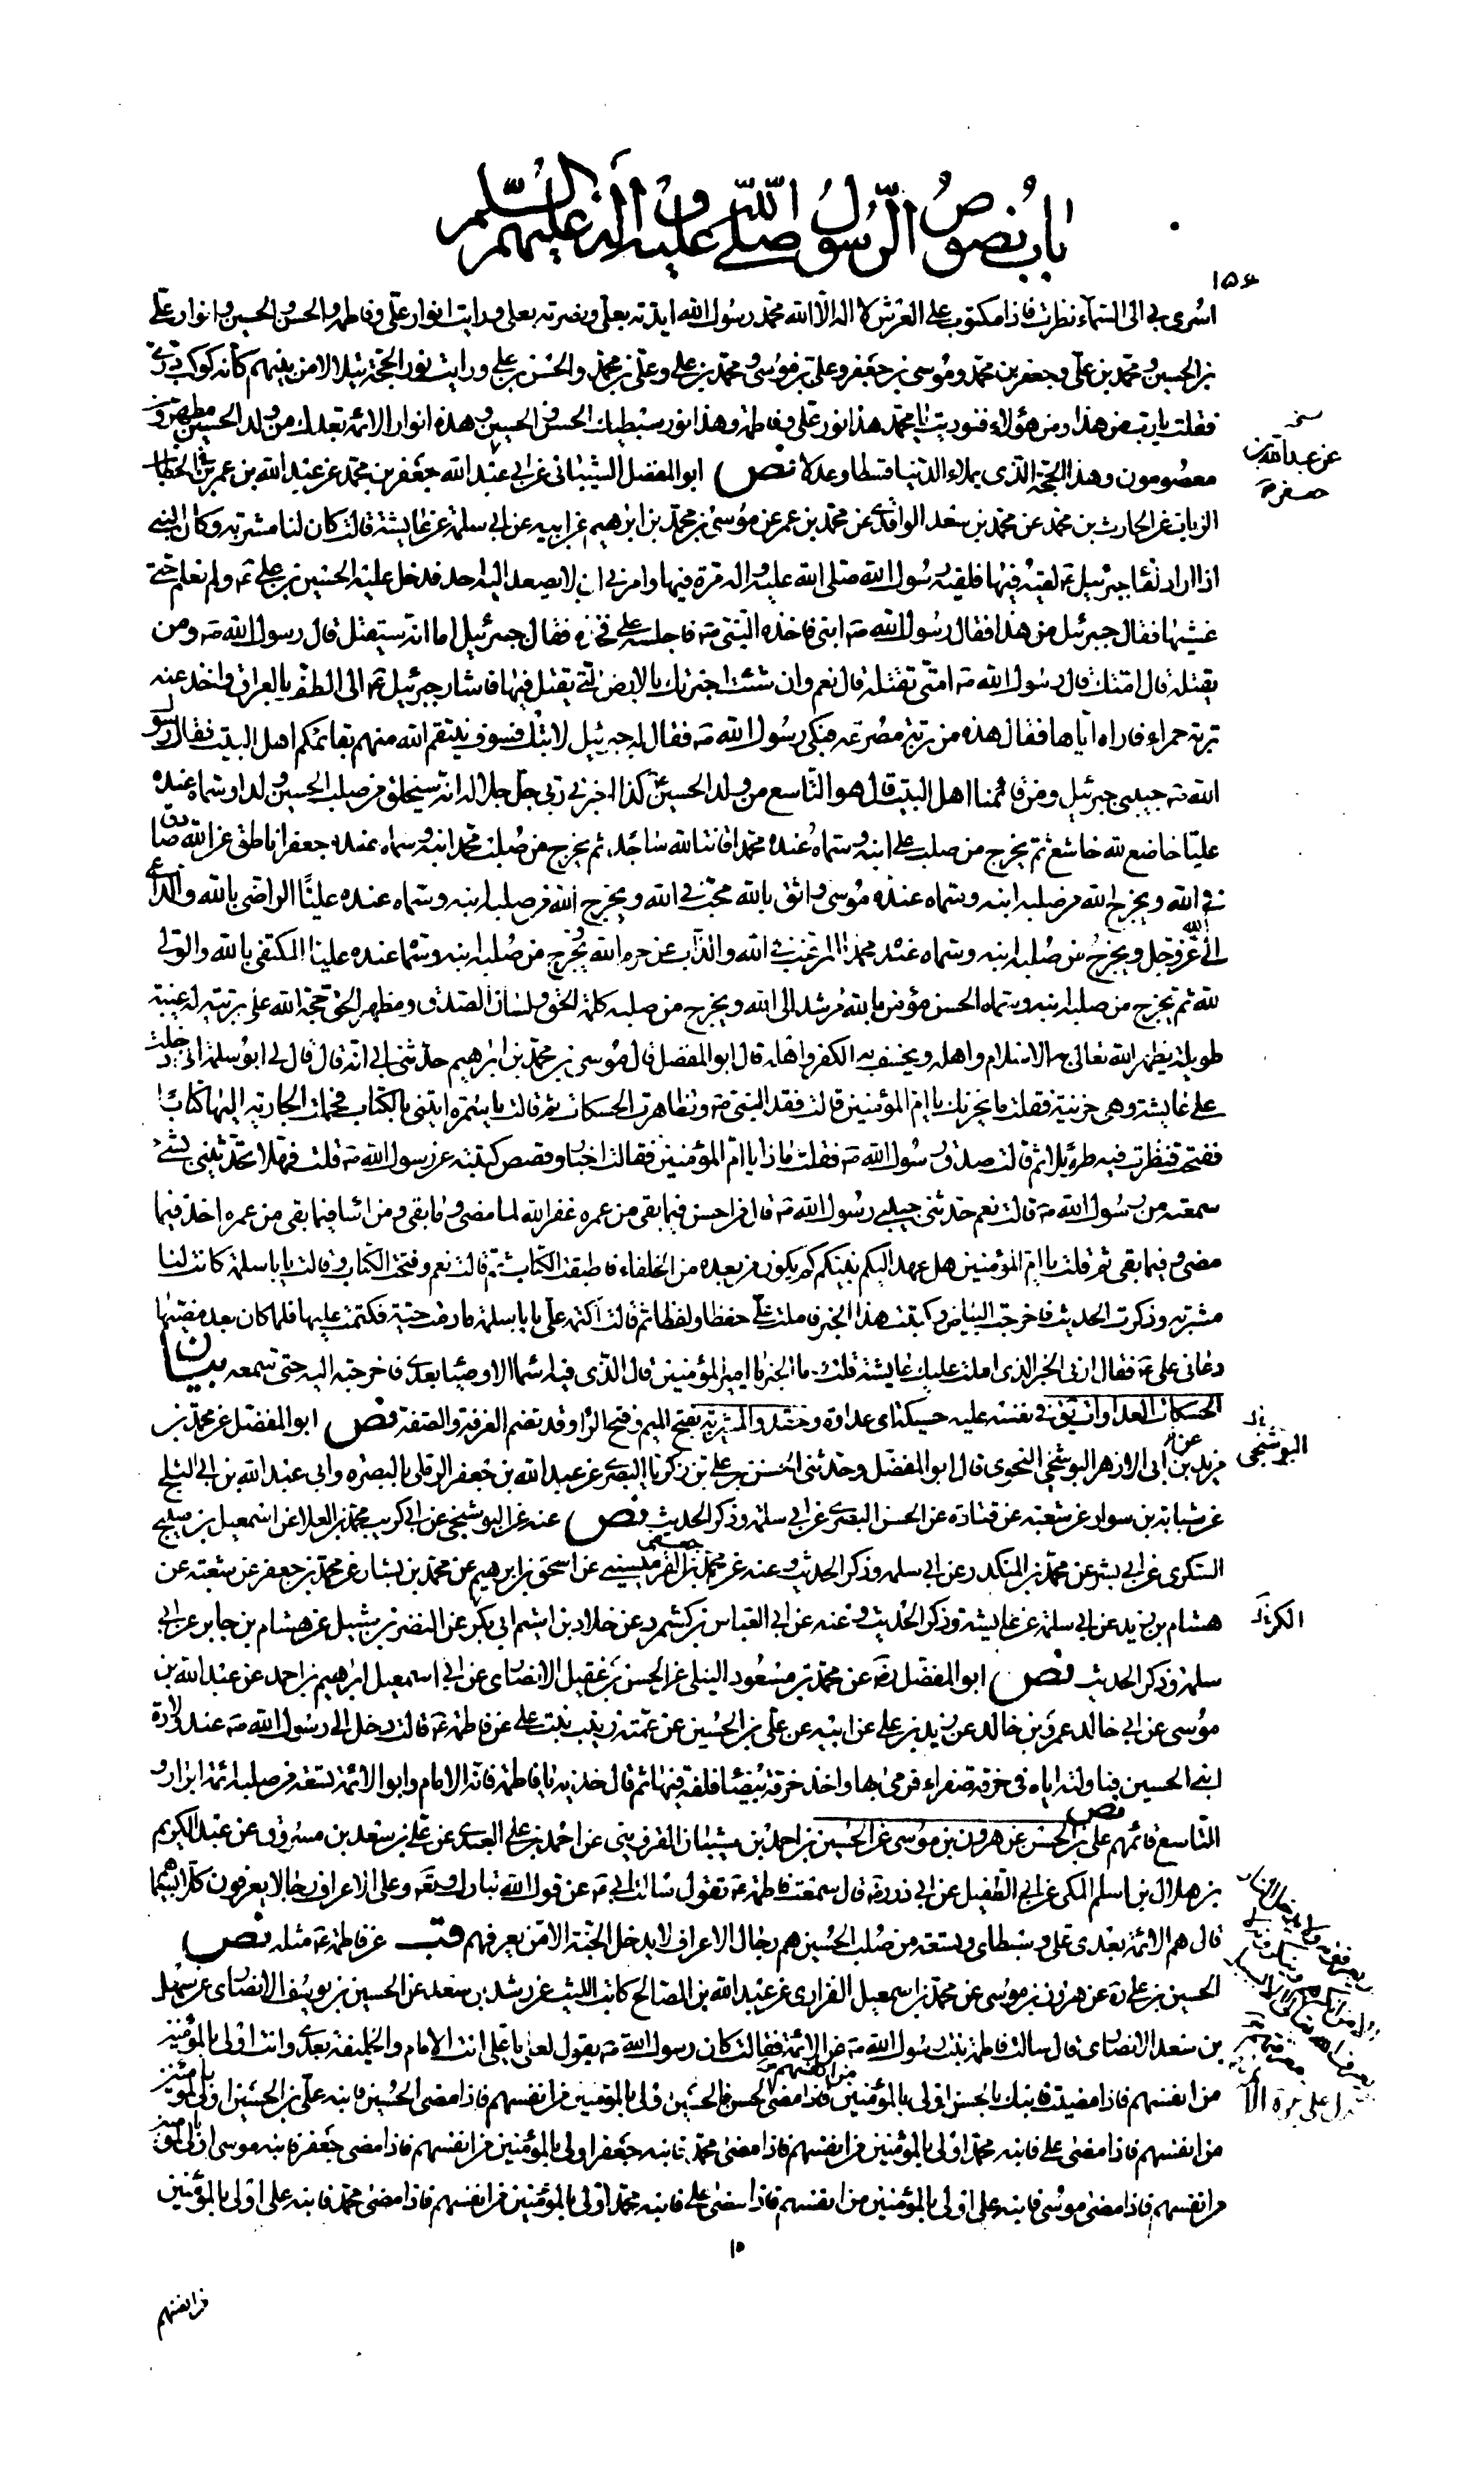 باب نصوص الرسول صلى الله عليه و اله عليهم السلم
١٥٤
اسرى بى الى السماء نظرت فاذا مكتوب على العرش لا اله الا الله محمد رسول الله ايدته بعلى ونصرته بعلى ورايت انوار على وفاطمة والحسن والحسين وانوار على
بن الحسين ومحمد بن على وجعفر بن محمد وموسى بن جعفر وعلى بن موسى ومحمد بن على وعلى بن محمد والحسن بن على ورايت نور الحجة يتلالا من بينهم كانه كوكب درى
فقلت يا رب من هذا ومن هؤلاء فنوديت يا محمد هذا نور على وفاطمة وهذا نور سبطيك الحسن والحسين وهذه انوار الائمة بعدك من ولد الحسين مطهرون
معصومون وهذا الحجة الذى يملاء الدنيا قسطا وعدلا نص ابو المفضل الشيبانى عن ابى عبد الله جعفر بن محمد عن عبد الله بن عمر بن الخطاب
الزيات عن الحارث بن محمد عن محمد بن سعد الواقدى عن محمد بن عمر عن موسى بن محمد بن ابرهيم عن ابيه عن ابى سلمة عن عايشة قالت كان لنا مشربة وكان النبى
اذا اراد لقا جبرئيل ع لقيه فيها فلقيه رسول الله صلى الله عليه واله مرة فيها وامرنى ان لا يصعد اليه احد فدخل عليه الحسين بن على ع ولم نعلم حتى
غشيها فقال جبرئيل من هذا فقال رسول الله ص ابنى فاخذه النبى ص فاجلسه على فخذه فقال جبرئيل اما انه سيقتل قال رسول الله ص ومن
يقتله قال امتك قال رسول الله ص امتى تقتله قال نعم وان شئت اخبرتك بالارض التى يقتل فيها فاشار جبرئيل ع الى الطف بالعراق واخذ عنه
تربة حمراء فاراه اياها فقال هذه من تربة مصرعه فبكى رسول الله ص فقال له جبرئيل لا تبك فسوف ينتقم الله منهم بقائمكم اهل البيت فقال رسو
الله ص حبيبى جبرئيل ومن قائمنا اهل البيت قال هو التاسع من ولد الحسين ع كذا اخبرنى ربى جل جلاله انه سيخلق من صلب الحسين ولدا وسماه عنده
عليا خاضع لله خاشع ثم يخرج من صلب على ابنه وسماه عنده محمدا قانتا لله ساجد ثم يخرج من صلب محمد ابنه وسماه عنده جعفرا ناطق عن الله صادق
فى الله ويخرج الله من صلبه ابنه وسماه عنده موسى واثق بالله محب فى الله ويخرج الله من صلبه ابنه وسماه عنده عليا الراضى بالله والداعى
الى الله عز وجل ويخرج من صلبه ابنه وسماه عنده محمدا المرغب فى الله والذاب عن حرم الله يخرج من صلبه ابنه وسماه عنده عليا المكتفى بالله والولى
لله ثم يخرج من صلبه ابنه وسماه الحسن مؤمن بالله مرشد الى الله ويخرج من صلبه كلمة الحق ولسان الصدق ومظهر الحق حجة الله على بريته له غيبة
طويلة يظهر الله تعالى به الاسلام واهله ويخسف به الكفر واهله قال ابو المفضل قال موسى بن محمد بن ابرهيم حدثنى ابى انه قال قال لى ابو سلمة انى دخلت
على عايشة وهى حزينة فقلت ما يحزنك يا ام المؤمنين قالت فقد النبى ص وتظاهرت الحسكات ثم قالت يا سمرة ايتينى بالكتاب فحملت الجارية اليها كتابا
ففتحت ونظرت فيه طويلا ثم قالت صدق رسول الله ص فقلت ماذا يا ام المؤمنين فقالت اخبار وقصص كتبته عن رسول الله ص قلت فهلا تحدثينى بشئ
سمعته من رسول الله ص قالت نعم حدثنى حبيبى رسول الله ص قال من احسن فيما بقى من عمره غفر الله لما مضى وما بقى ومن اسا فيما بقى من عمره اخذ فيما
مضى وفيما بقى ثم قلت يا ام المؤمنين هل عهد اليكم نبيكم كم يكون من بعده من الخلفاء فاطبقت الكتاب ثم قالت نعم وفتحت الكتاب وقالت يا با سلمة كانت لنا
مشربة وذكرت الحديث فاخرجت البياض وكتبت هذا الخبر فاملت على حفظا ولفظا ثم قالت اكتمه على يا با سلمة ما دمت حية فكتمت عليها فلما كان بعد مضيها
دعانى على ع فقال ارنى الخبر الذى املت عليك عايشة قلت وما الخبر يا امير المؤمنين قال الذى فيه اسما الاوصيا بعدى فاخرجته اليه حتى سمعه بيان
الحسكات العداوات يقال فى نفسه عليه حسيكة اى عداوة وحقد والمشربة بفتح الميم وفتح الرا وقد تضم الغرفة والصفة نص ابو المفضل عن محمد بن
مزيد بن ابى الازهر البوشنجى النحوى قال ابو المفضل وحدثنى الحسن بن على بن زكريا البصرى عن عبد الله بن جعفر الرقلى بالبصرة وابى عبد الله بن ابى الثلج
عن شبابة بن سوار عن شعبة عن قتادة عن الحسن البصرى عن ابى سلمة وذكر الحديث نص عنه عن البوشنجى عن ابى كريب محمد بن العلا عن اسمعيل بن صبيح
السكرى عن ابى بشر عن محمد بن المنكدر عن ابى سلمة وذكر الحديث وعنه عن محمد بن القرميسينى عن اسحق بن ابرهيم عن محمد بن بشار عن محمد بن جعفر عن شعبة عن
هشام بن يزيد عن ابى سلمة عن عايشة وذكر الحديث وعنه عن ابى العباس بن كشمرد عن خلاد بن اشيم ابى بكر عن النضر بن شبيل عن هشام بن جابر عن ابى
سلمة وذكر الحديث نص ابو المفضل رضه عن محمد بن مسعود النيلى عن الحسن بن عقيل الانصارى عن ابى اسمعيل ابرهيم بن احمد عن عبد الله بن
موسى عن ابى خالد عمرو بن خالد عن زيد بن على عن ابيه عن على بن الحسين عن عمته زينب بنت على عن فاطمة ع قالت دخل الى رسول الله ص عند ولادة
ابنى الحسين فناولته اياه فى خرقة صفراء فرمى بها واخذ خرقة بيضا فلفه فيها ثم قال خذيه يا فاطمة فانه الامام وابو الائمة تسعة من صلبه ائمة ابرار و
التاسع قائمهم نص على بن الحسن عن هرون بن موسى عن الحسين بن احمد بن شيبان القزوينى عن احمد بن على العبدى عن على بن سعد بن مسروق عن عبد الكريم
بن هلال بن اسلم المكى عن ابى الطفيل عن ابى ذر رضه قال سمعت فاطمة ع تقول سالت ابى ص عن قول الله تبارك وتعه وعلى الاعراف رجال يعرفون كلا بسيماهم
قال هم الائمة بعدى على وسبطاى وتسعة من صلب الحسين هم رجال الاعراف لا يدخل الجنة الا من يعرفهم قب عن فاطمة ع مثله نص
الحسين بن على ره عن هرون بن موسى عن محمد بن اسمعيل الفزارى عن عبد الله بن الصالح كاتب الليث عن رشد بن سعد عن الحسين بن يوسف الانصارى عن سهل
بن سعد الانصارى قال سالت فاطمة بنت رسول الله ص عن الائمة فقالت كان رسول الله ص يقول لعلى يا على انت الامام والخليفة بعدى وانت اولى بالمؤمنين
من انفسهم فاذا مضيت فابنك الحسن اولى بالمؤمنين من انفسهم فاذا مضى الحسن فالحسين اولى بالمؤمنين من انفسهم فاذا مضى الحسين فابنه على بن الحسين اولى بالمؤمنين
من انفسهم فاذا مضى على فابنه محمد اولى بالمؤمنين من انفسهم فاذا مضى محمد فابنه جعفر اولى بالمؤمنين من انفسهم فاذا مضى جعفر فابنه موسى اولى بالمؤمنين
من انفسهم فاذا مضى موسى فابنه على اولى بالمؤمنين من انفسهم فاذا مضى على فابنه محمد اولى بالمؤمنين من انفسهم فاذا مضى محمد فابنه على اولى بالمؤمنين
١٥
من انفسهم
عن عبد الله بن
جعفر
البوشنجى